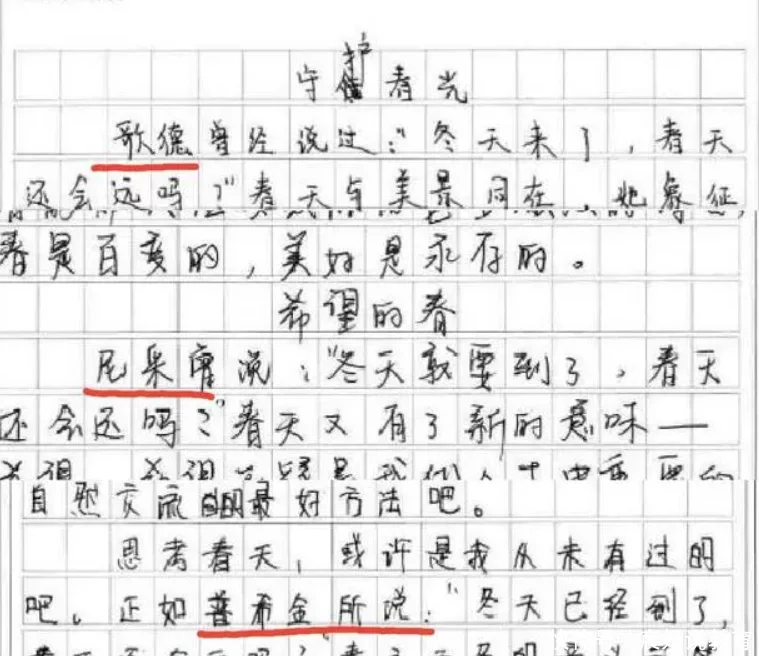 守护春光
歌德曾经说过:"冬天来了,春天
还会远吗?"春天与美景同在,她象征
春是百变的,美好是永存的。
希望的春
尼采曾说:"冬天就要到了,春天
还会还吗?"春天又有了新的意味——
自然交流的最好方法吧。
思考春天,或许是我从未有过的
吧。正如普希金所说:"冬天已经到了,